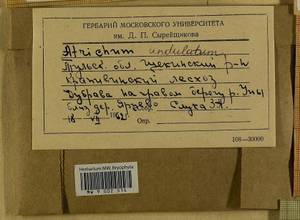 ГЕРБАРИЙ МОСКОВСКОГО УНИВЕРСИТЕТА
им. Д. П. Сырейщикова
Atrichum undulatum
Тульск. обл. Щекинский р-н
Крапивинский лесхоз
Дубрава на правом берегу р. Упы
близ дер. Слука З.Я.
18 VII 1962 Опр.
108—30000
Herbarium MW, Bryophyta